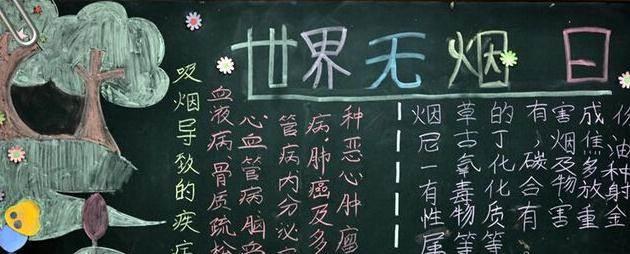 世界无烟日
吸烟导致的疾病
血液病、骨质疏松
心血管病脑血
管病、内分泌
病、肺癌及多
种恶心肿瘤
烟草的有害成份
尼古丁,烟焦油
一氧化碳及多种
有毒化合物放射
性物质有害重金
属等等